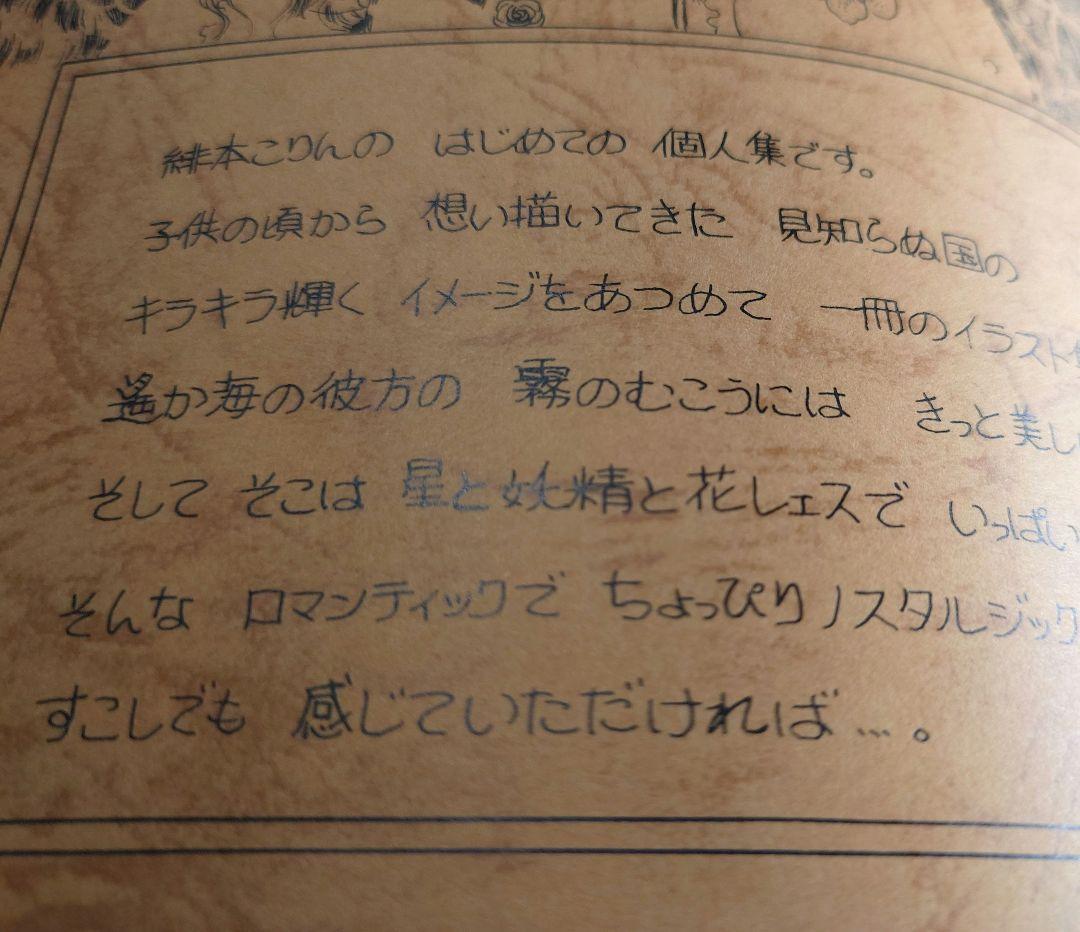 緋本こりんの はじめての 個人集です。
子供の頃から 想い描いてきた 見知らぬ国の
キラキラ輝く イメージをあつめて 一冊のイラスト
遙か海の彼方の 霧のむこうには きっと美し
そして そこは 星と妖精と花レェスで いっぱい
そんな ロマンティックで ちょっぴりノスタルジック
すこしでも 感じていただければ…。